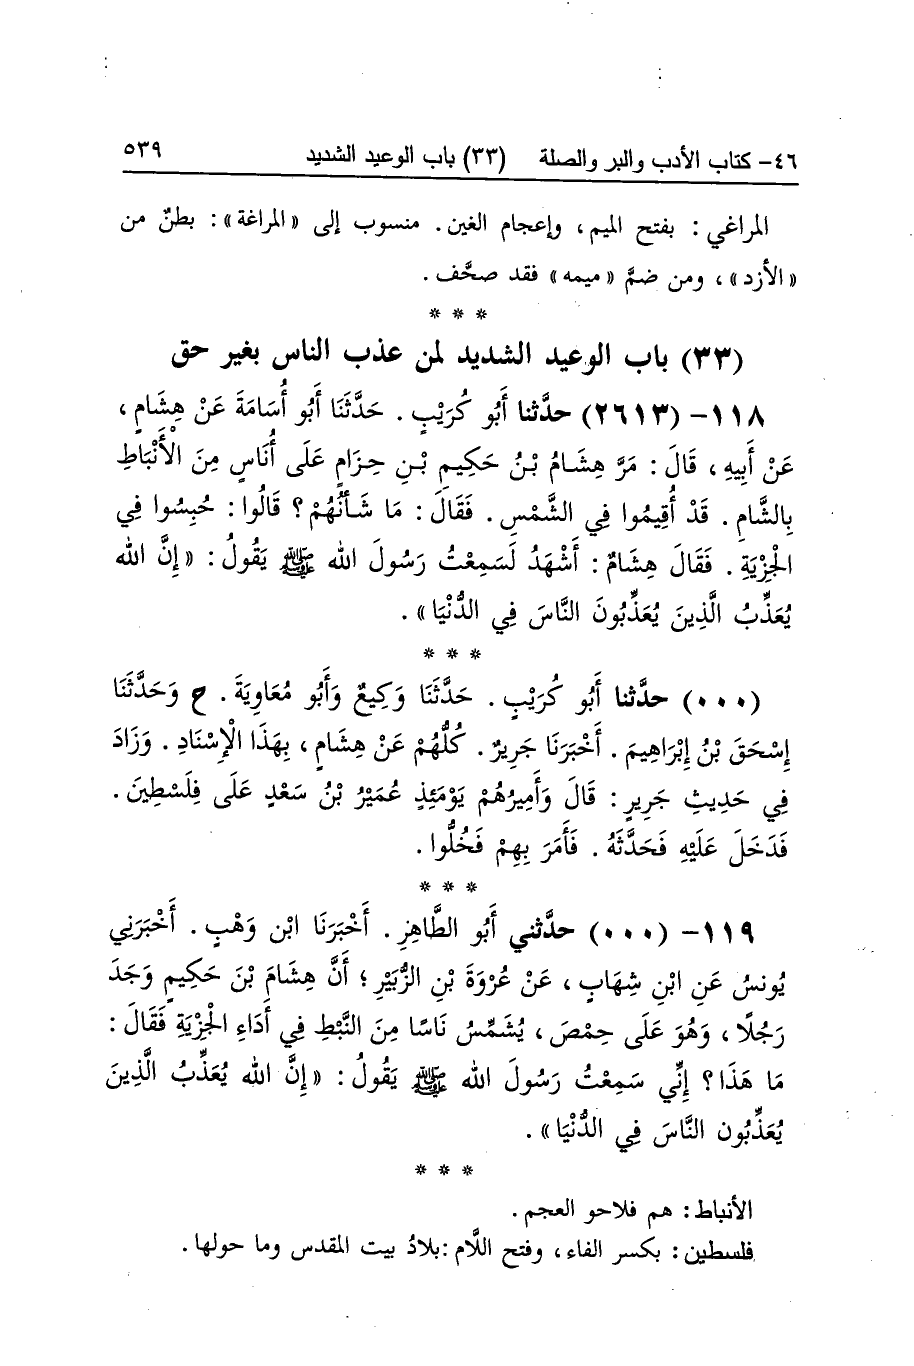 ٤٦- كتاب الأدب والبر والصلة (٣٣) باب الوعيد الشديد ٥٣٩
المراغي: بفتح الميم، وإعجام الغين. منسوب إلى «المراغة»: بطنٌ من
«الأزد»، ومن ضمَّ «ميمه» فقد صحَّف.
* * *
(٣٣) باب الوعيد الشديد لمن عذب الناس بغير حق
١١٨- (٢٦١٣) حدَّثنا أَبُو كُرَيْبٍ. حَدَّثَنَا أَبُو أُسَامَةَ عَنْ هِشَامٍ،
عَنْ أَبِيهِ، قَالَ: مَرَّ هِشَامُ بْنُ حَكِيمِ بْنِ حِزَامٍ عَلَى أُنَاسٍ مِنَ الْأَنْبَاطِ
بِالشَّامِ. قَدْ أُقِيمُوا فِي الشَّمْسِ. فَقَالَ: مَا شَأْنُهُمْ؟ قَالُوا: حُبِسُوا فِي
الْجِزْيَةِ. فَقَالَ هِشَامٌ: أَشْهَدُ لَسَمِعْتُ رَسُولَ الله ﷺ يَقُولُ: «إِنَّ الله
يُعَذِّبُ الَّذِينَ يُعَذِّبُونَ النَّاسَ فِي الدُّنْيَا».
* * *
(٠٠٠) حدَّثنا أَبُو كُرَيْبٍ. حَدَّثَنَا وَكِيعٌ وَأَبُو مُعَاوِيَةَ. ح وَحَدَّثَنَا
إِسْحَقَ بْنُ إِبْرَاهِيمَ. أَخْبَرَنَا جَرِيرٌ. كُلُّهُمْ عَنْ هِشَامٍ، بِهَذَا الْإِسْنَادِ. وَزَادَ
فِي حَدِيثِ جَرِيرٍ: قَالَ وَأَمِيرُهُمْ يَوْمَئِذٍ عُمَيْرُ بْنُ سَعْدٍ عَلَى فِلَسْطِينَ.
فَدَخَلَ عَلَيْهِ فَحَدَّثَهُ. فَأَمَرَ بِهِمْ فَخُلُّوا.
* * *
١١٩- (٠٠٠) حدَّثني أَبُو الطَّاهِرِ. أَخْبَرَنَا ابْن وَهْبٍ. أَخْبَرَنِي
يُونسُ عَنِ ابْنِ شِهَابٍ، عَنْ عُرْوَةَ بْنِ الزُّبَيْرِ؛ أَنَّ هِشَامَ بْنَ حَكِيمٍ وَجَدَ
رَجُلًا، وَهُوَ عَلَى حِمْصَ، يُشَمِّسُ نَاسًا مِنَ النَّبْطِ فِي أَدَاءِ الْجِزْيَةِ فَقَالَ:
مَا هَذَا؟ إِنِّي سَمِعْتُ رَسُولَ الله ﷺ يَقُولُ: «إِنَّ الله يُعَذِّبُ الَّذِينَ
يُعَذِّبُون النَّاسَ فِي الدُّنْيَا».
* * *
الأنباط: هم فلاحو العجم.
فلسطين: بكسر الفاء، وفتح اللَّام: بلادُ بيت المقدس وما حولها.